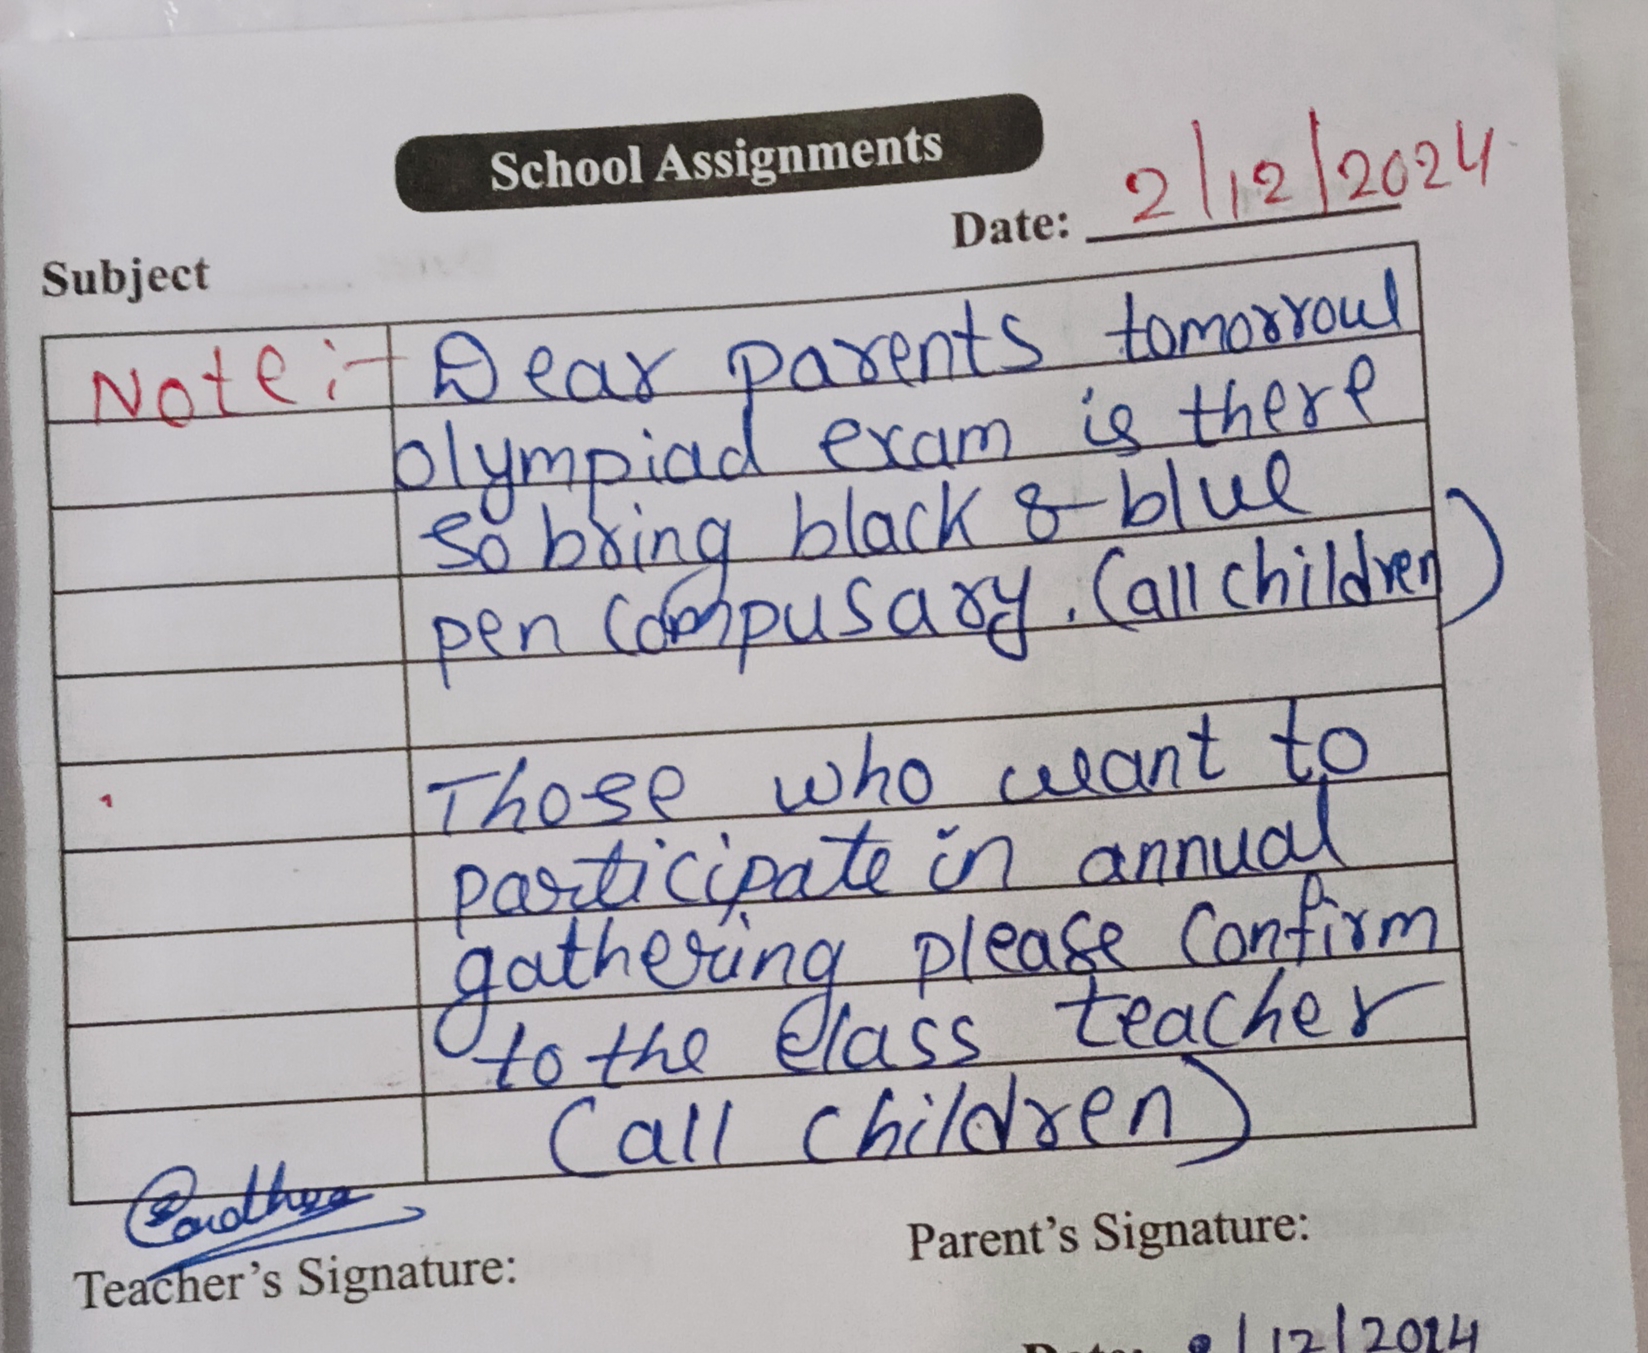 School Assignments
Date: 2/12/2024
Subject
Note:- Dear parents tomorrow
olympiad exam is there
so bring black & blue
pen compusary. (all children)
Those who want to
participate in annual
gathering please confirm
to the class teacher
(all children)
Teacher's Signature:
Parent's Signature:
/12/2024